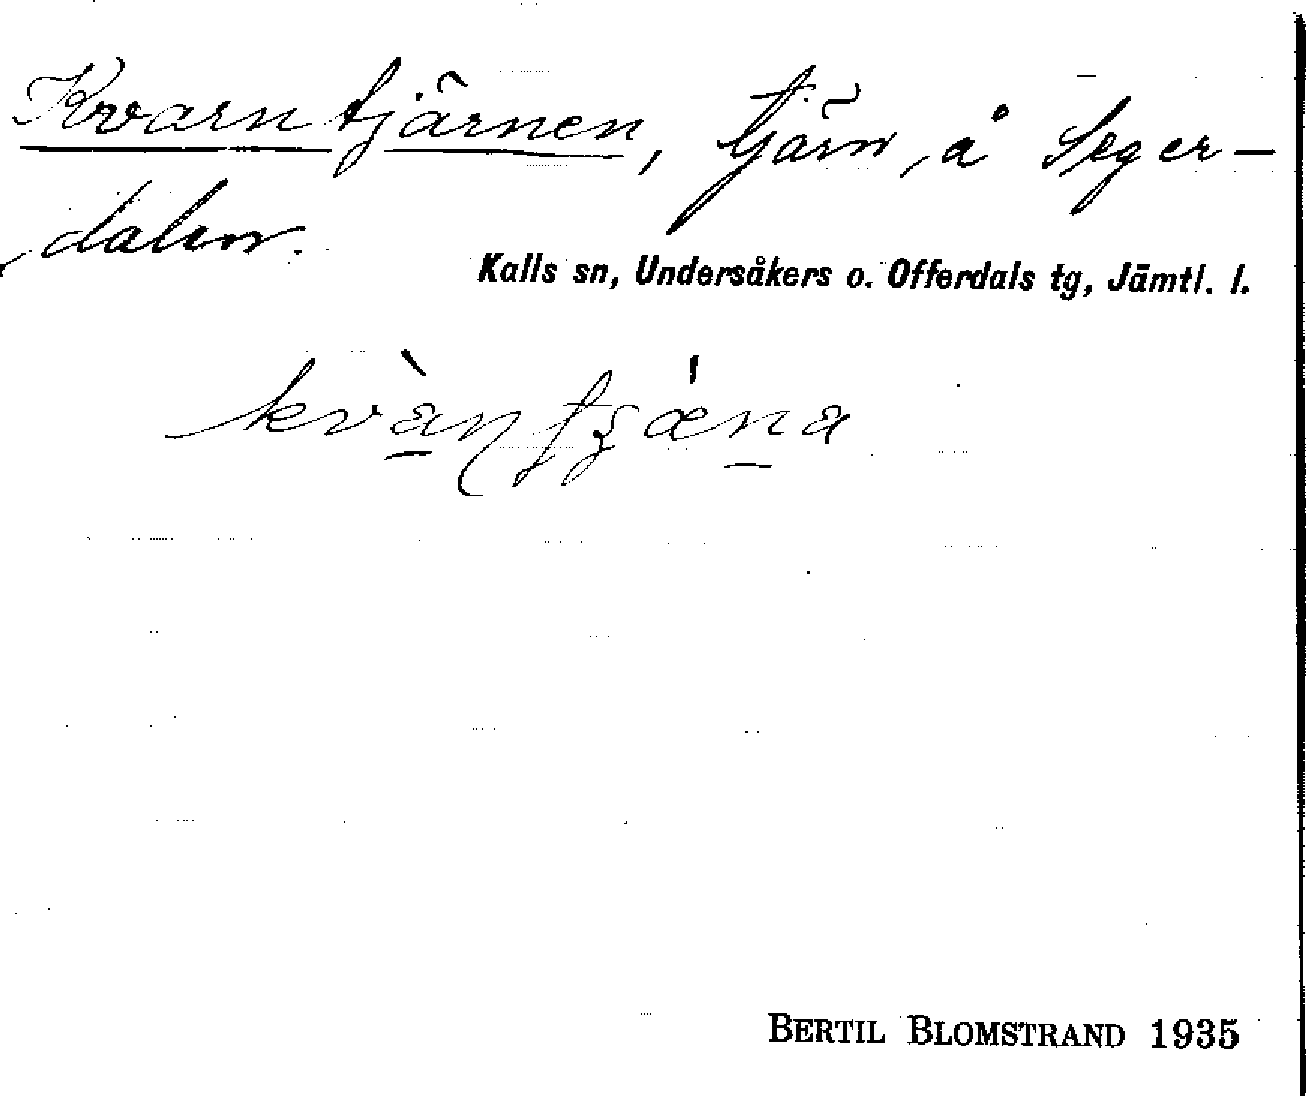 Kvarntjärnen, tjärn å Seger-
dalen.
Kalls sn, Undersåkers o. Offerdals tg, Jämtl. l.
BERTIL BLOMSTRAND 1935